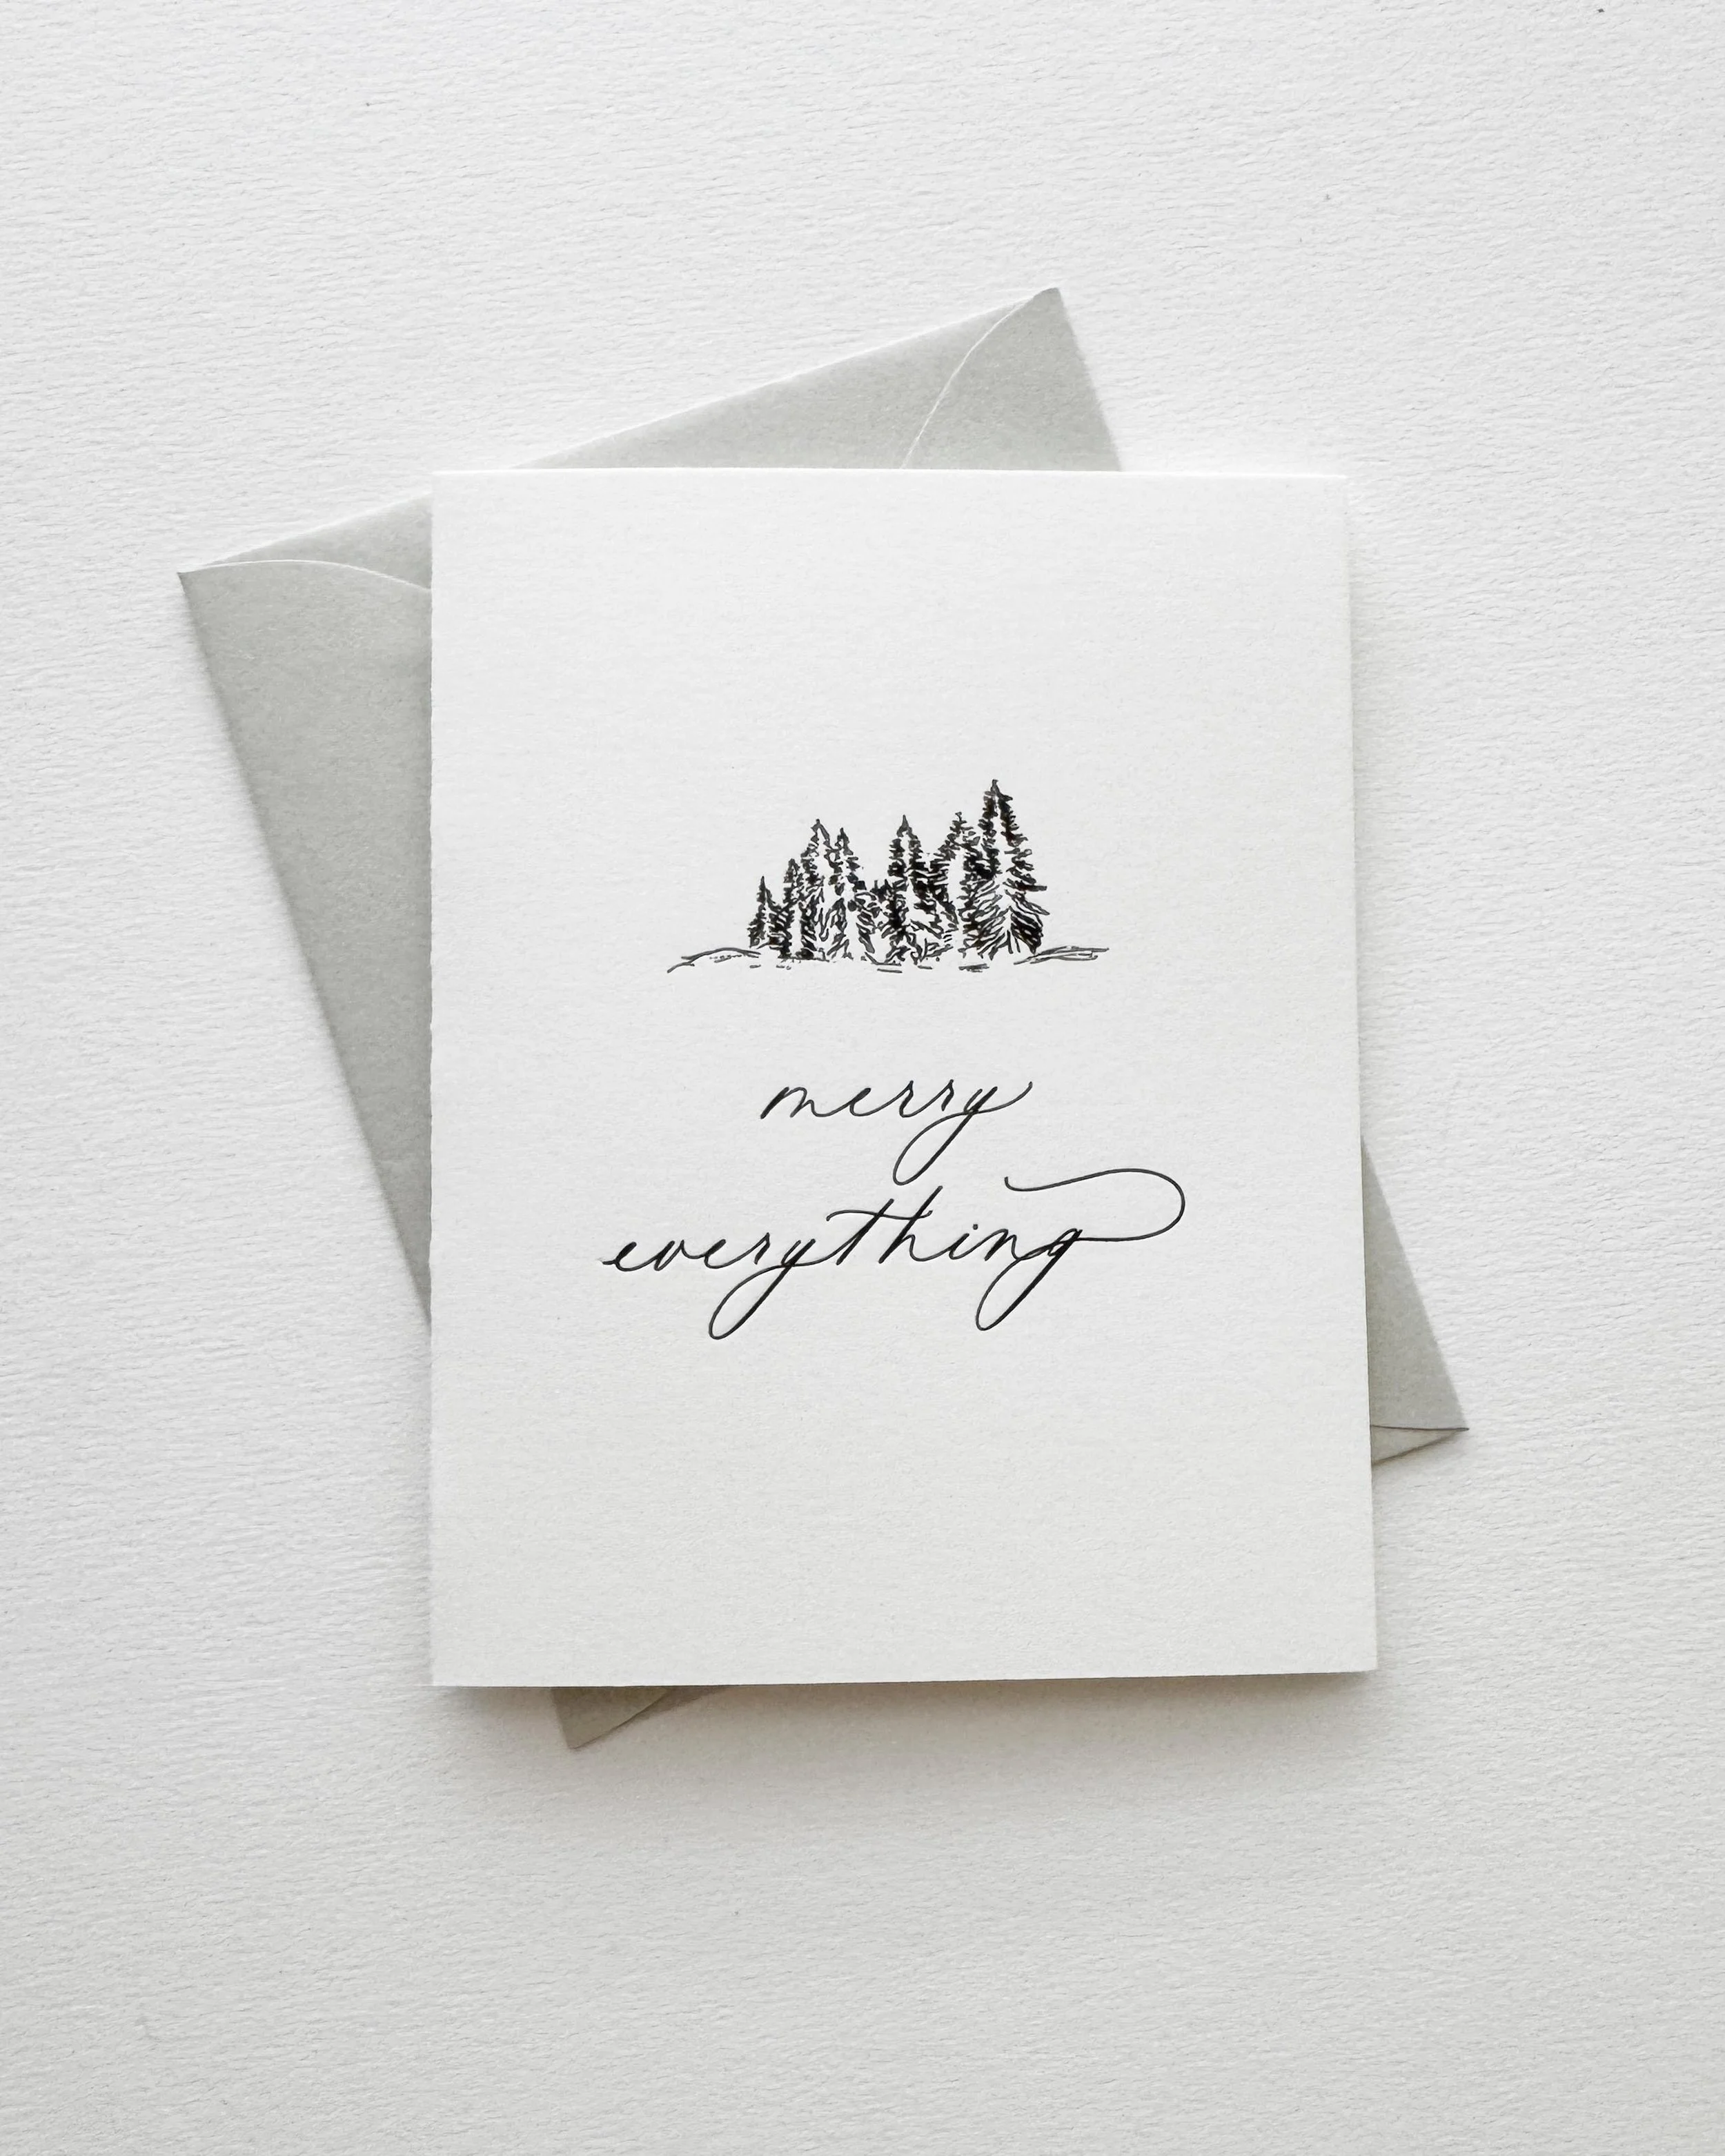 merry
everything